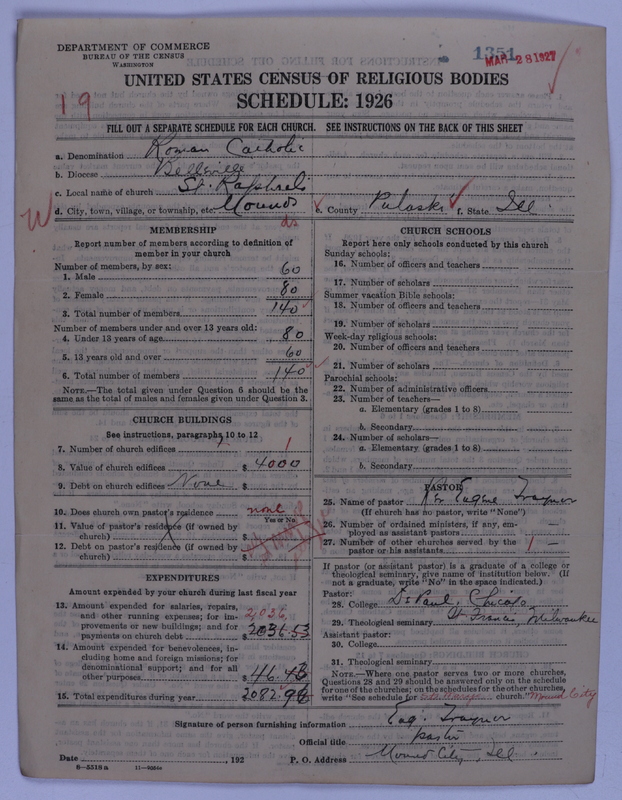 DEPARTMENT OF COMMERCE
BUREAU OF THE CENSUS
WASHINGTON
1351
MAR 28 1927
UNITED STATES CENSUS OF RELIGIOUS BODIES
SCHEDULE: 1926
19
FILL OUT A SEPARATE SCHEDULE FOR EACH CHURCH. SEE INSTRUCTIONS ON THE BACK OF THIS SHEET
a. Denomination Roman Catholic
b. Diocese Belleville
c. Local name of church St. Raphaels
d. City, town, village, or township, etc. Mounds e. County Pulaski f. State Ill.
W
ds
MEMBERSHIP
Report number of members according to definition of
member in your church
Number of members, by sex:
1. Male 60
2. Female 80
3. Total number of members 140
Number of members under and over 13 years old:
4. Under 13 years of age 80
5. 13 years old and over 60
6. Total number of members 140
NOTE.—The total given under Question 6 should be the
same as the total of males and females given under Question 3.
CHURCH BUILDINGS
See instructions, paragraphs 10 to 12
7. Number of church edifices 1
8. Value of church edifices $ 4000
9. Debt on church edifices None $
10. Does church own pastor's residence none
Yes or No
11. Value of pastor's residence (if owned by
church) $
12. Debt on pastor's residence (if owned by
church) $
EXPENDITURES
Amount expended by your church during last fiscal year
13. Amount expended for salaries, repairs,
and other running expenses; for im-
provements or new buildings; and for
payments on church debt $ 2036.53
2,036
14. Amount expended for benevolences, in-
cluding home and foreign missions; for
denominational support; and for all
other purposes $ 46.43
15. Total expenditures during year $ 2082.96
CHURCH SCHOOLS
Report here only schools conducted by this church
Sunday schools:
16. Number of officers and teachers
17. Number of scholars
Summer vacation Bible schools:
18. Number of officers and teachers
19. Number of scholars
Week-day religious schools:
20. Number of officers and teachers
21. Number of scholars
Parochial schools:
22. Number of administrative officers
23. Number of teachers—
a. Elementary (grades 1 to 8)
b. Secondary
24. Number of scholars—
a. Elementary (grades 1 to 8)
b. Secondary
PASTOR
25. Name of pastor Eugene Traynor
(If church has no pastor, write "None")
26. Number of ordained ministers, if any, em-
ployed as assistant pastors —
27. Number of other churches served by the
pastor or his assistants 1 —
If pastor (or assistant pastor) is a graduate of a college or
theological seminary, give name of institution below. (If
not a graduate, write "No" in the space indicated.)
Pastor:
28. College De Paul, Chicago
29. Theological seminary St Francis, Milwaukee
Assistant pastor:
30. College
31. Theological seminary
NOTE.—Where one pastor serves two or more churches,
Questions 28 and 29 should be answered only on the schedule
for one of the churches; on the schedules for the other churches,
write "See schedule for church." Mound City
Signature of person furnishing information Eug. Traynor
Official title pastor
Date , 192 P. O. Address Mound City, Ill.
8—5318 a